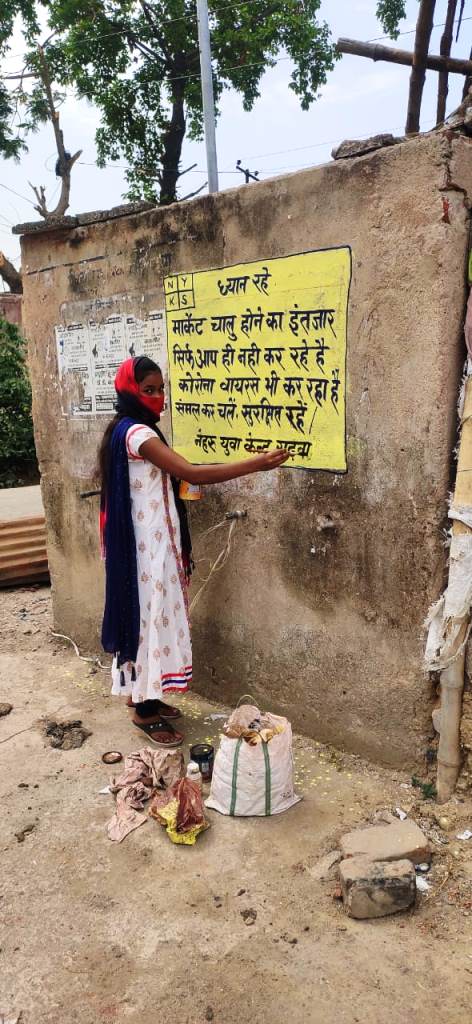 N Y
K S
ध्यान रहे
मार्केट चालु होने का इंतजार
सिर्फ आप ही नही कर रहे है
कोरोना वायरस भी कर रहा है
समल कर चलें, सुरक्षित रहें
नेहरु युवा केन्द्र गढ़वा